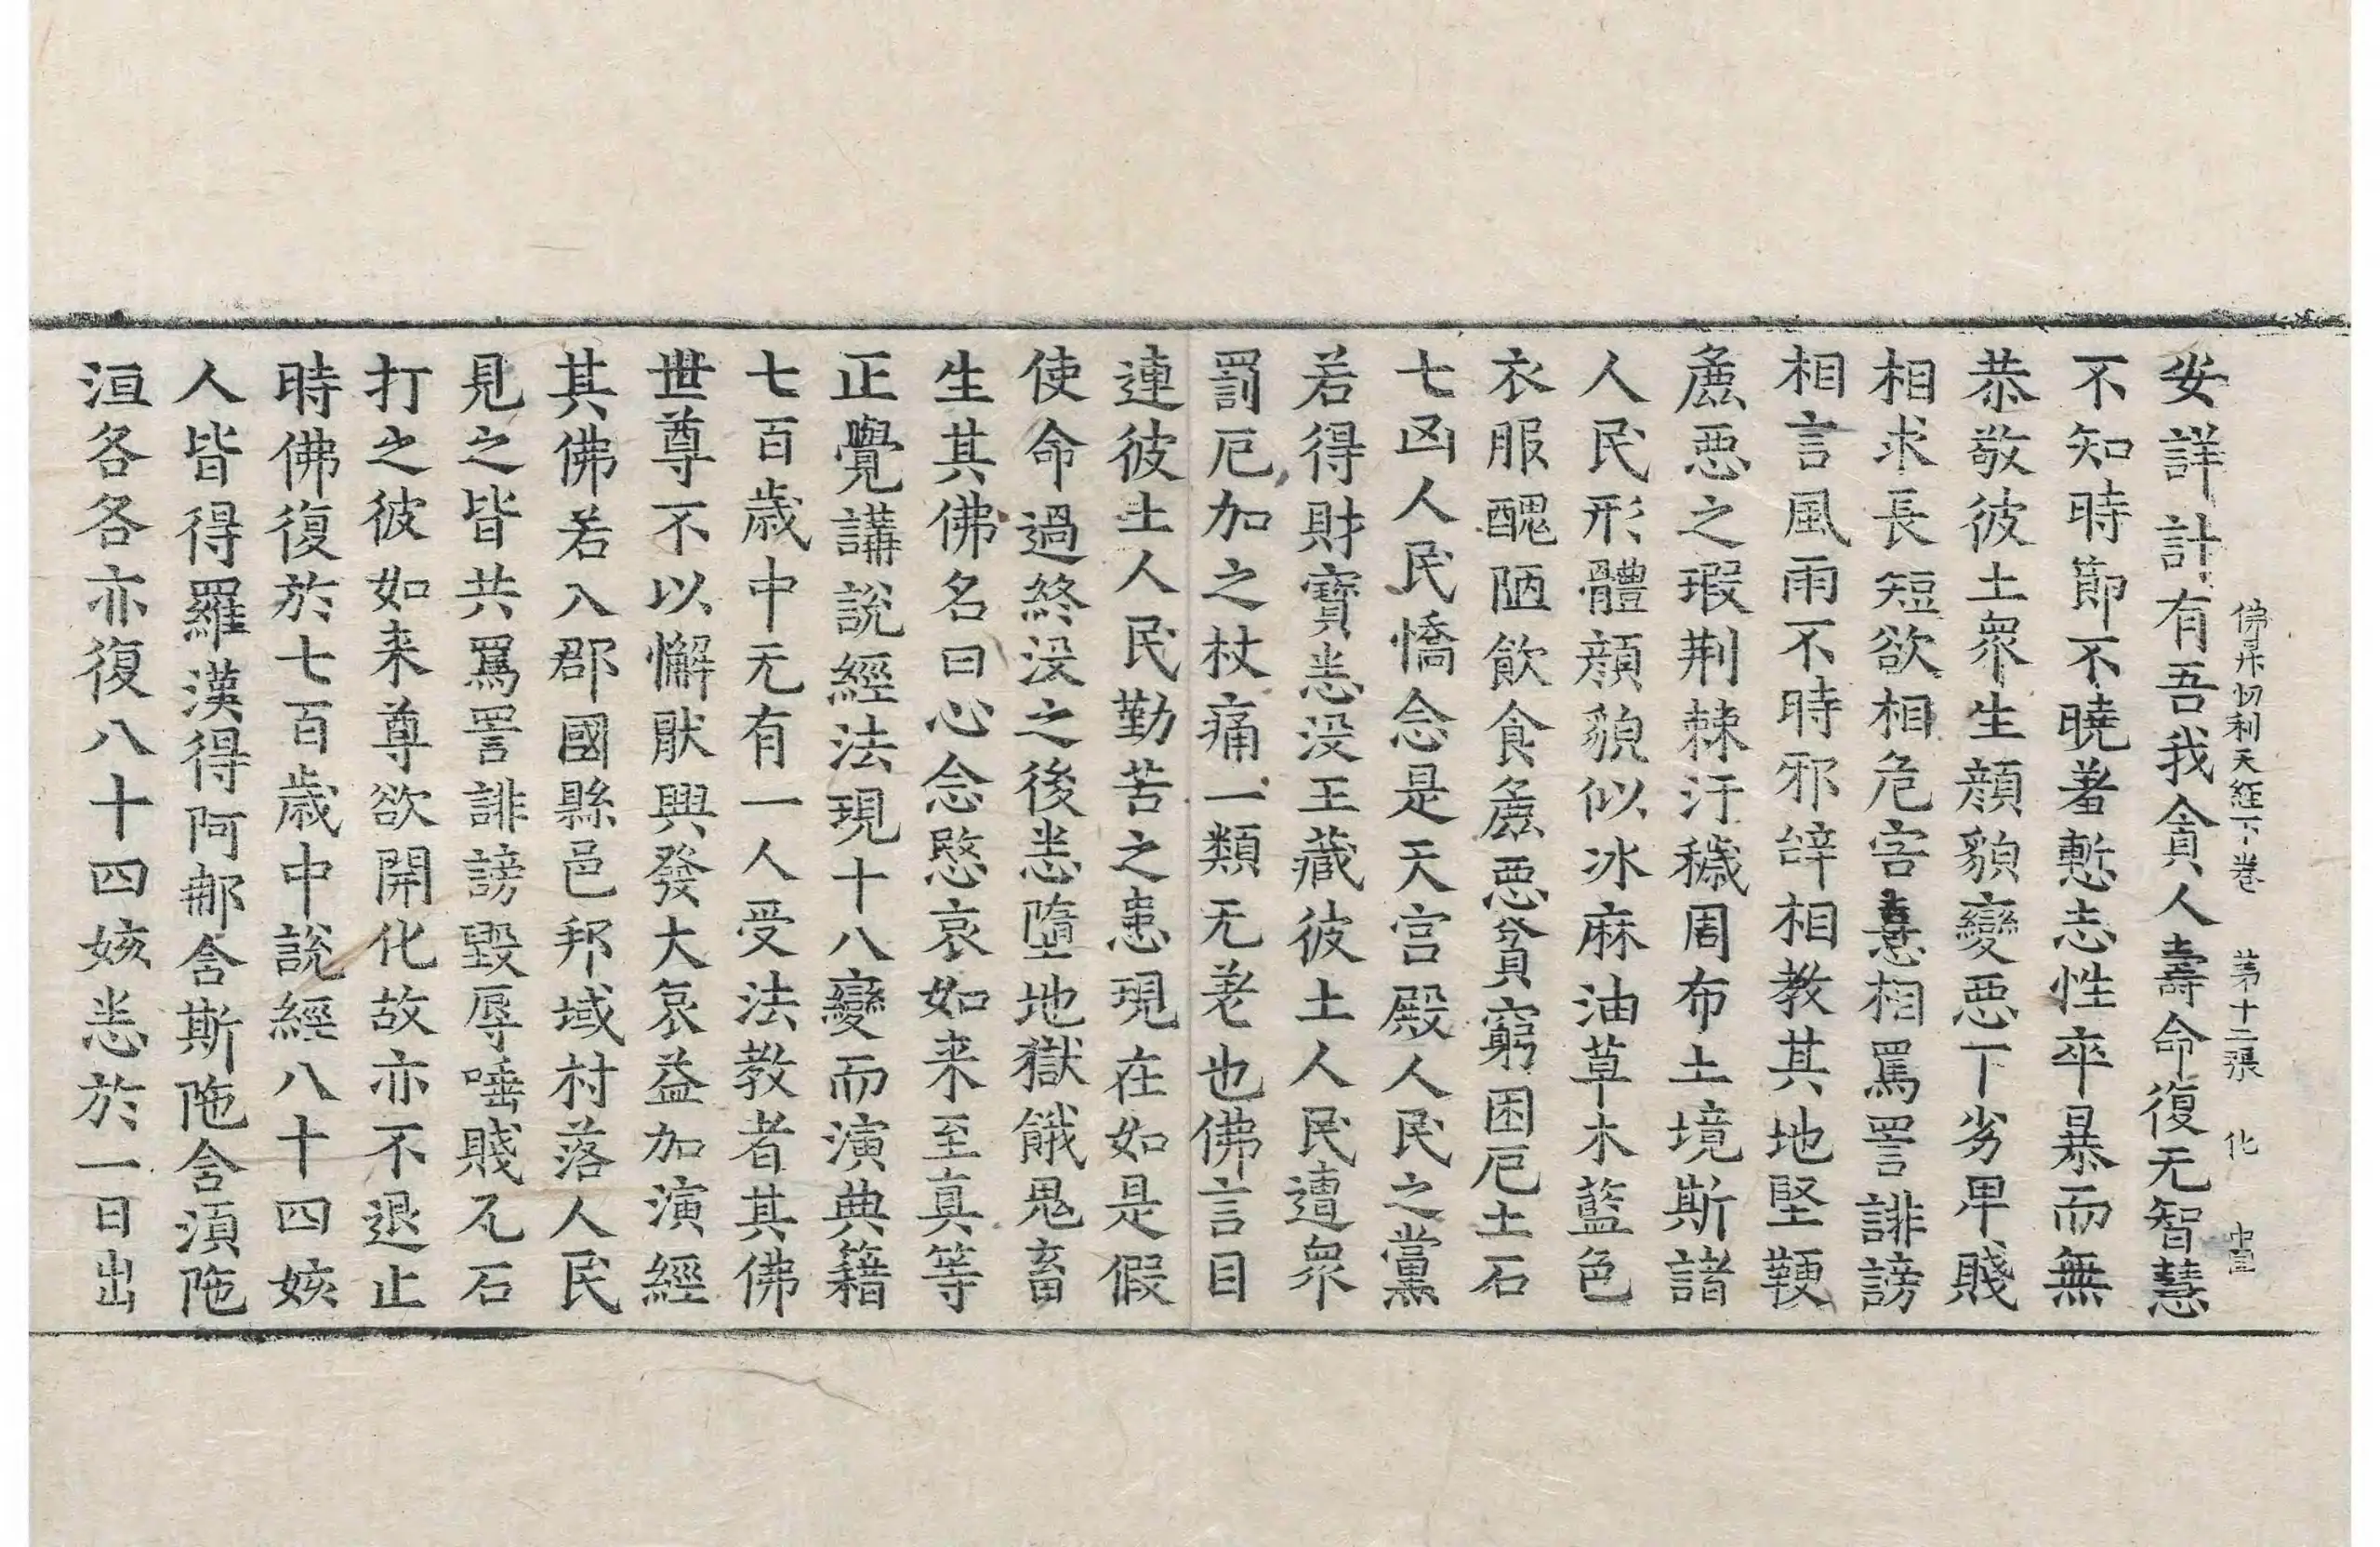 佛昇忉利天經下卷 苐十二張 化
安詳計有吾我貪人壽命復无智慧
不知時節不曉羞慙志性卒暴而無
恭敬彼土衆生顔貌變惡丅劣卑賤
相求長短欲相危害憙相罵詈誹謗
相言風雨不時邪辝相教其地堅鞕
麁惡之瑕荆棘汙穢周布土境斯諸
人民形體顔貌似冰麻油草木藍色
衣服醜陋飲食麁惡貧窮困厄土石
七凶人民憍念是天宫殿人民之黨
若得財寶恙没王藏彼土人民遭衆
罰厄加之杖痛一類无差也佛言目
連彼土人民勤苦之患現在如是假
使命過終没之後恙墮地獄餓鬼畜
生其佛名曰心念愍哀如来至真等
正覺講說經法現十八變而演典籍
七百歲中无有一人受法教者其佛
世尊不以懈猒興發大哀益加演經
其佛若入郡國縣邑邦域村落人民
見之皆共罵詈誹謗毀辱唾賤瓦石
打之彼如来尊欲開化故亦不退止
時佛復於七百歲中說經八十四姟
人皆得羅漢得阿那含斯陁含湏陁
洹各各亦復八十四姟恙於一日出